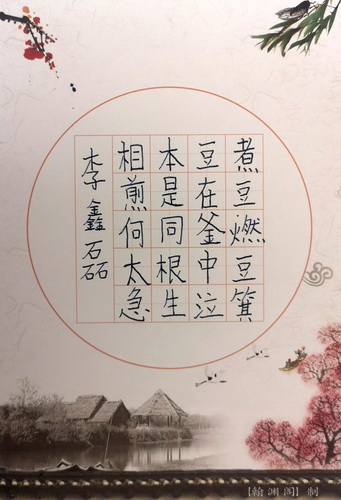 煮豆燃豆箕
豆在釜中泣
本是同根生
相煎何太急
李鑫磊
【翰渊阁】制